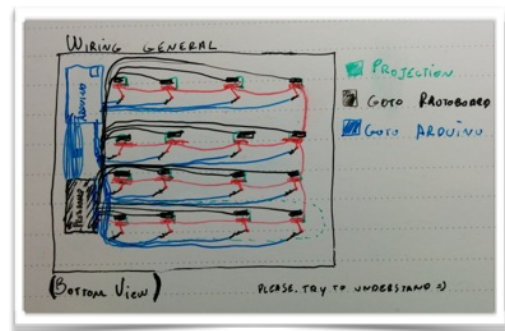 WIRING GENERAL
PROJECTION
GOTO PROTOBOARD
GOTO ARDUINO
ARDUINO
(BOTTOM VIEW)
PLEASE. TRY TO UNDERSTAND =)